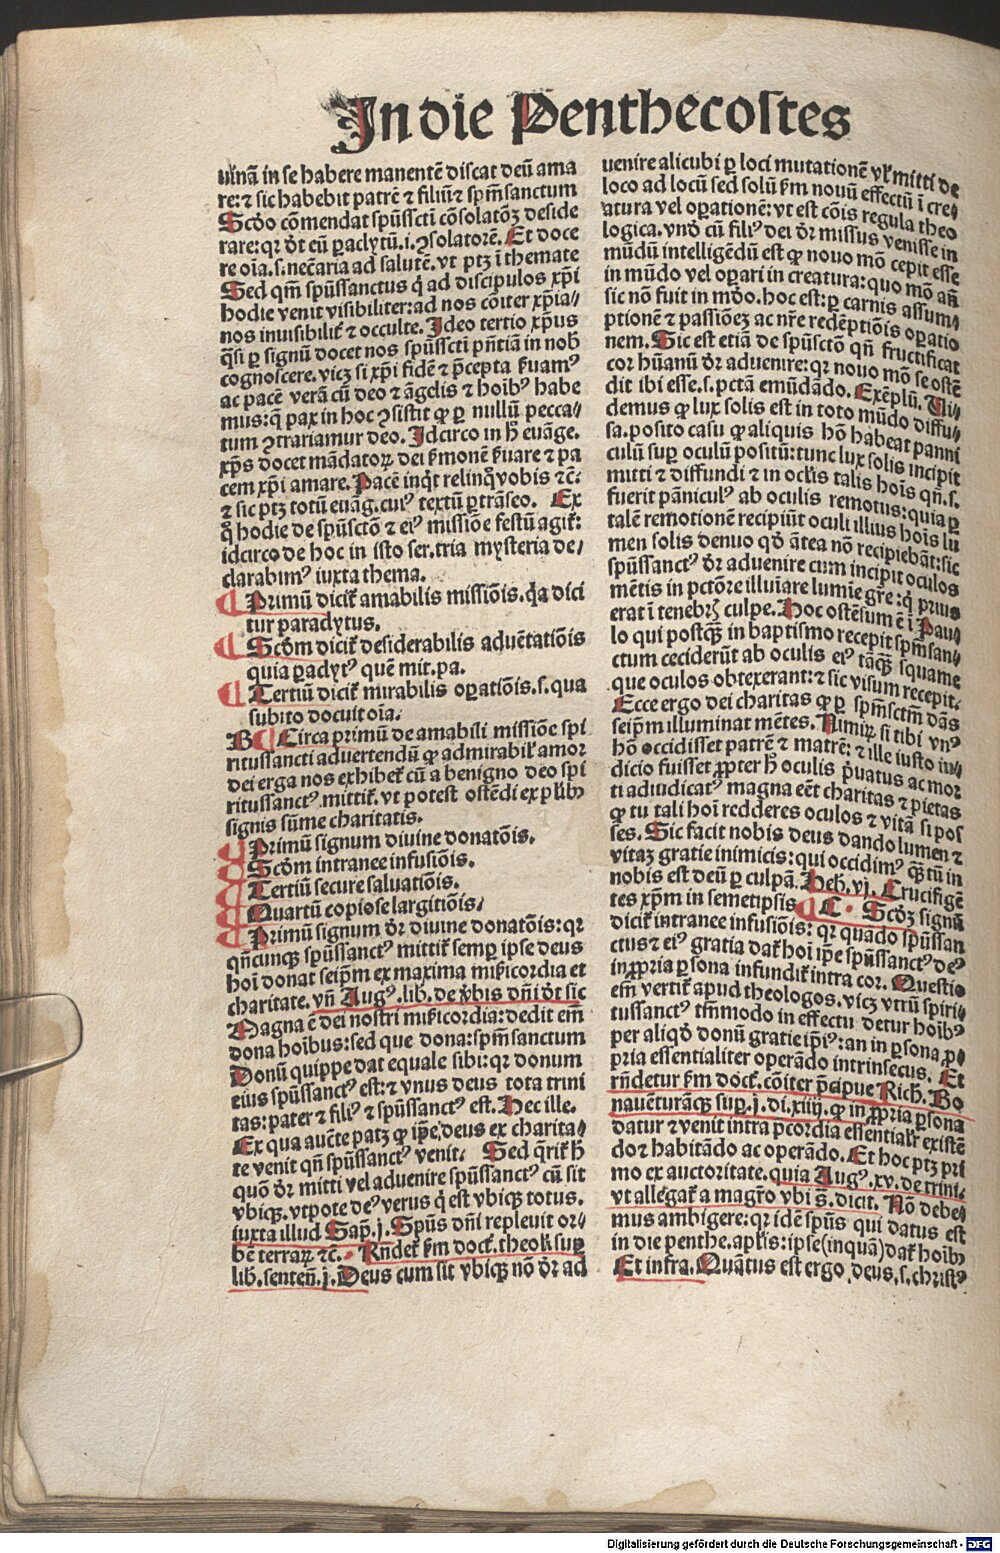 In die Penthecostes
uinā in se habere manentē discat deū ama
re: ⁊ sic habebit patrē ⁊ filiū ⁊ spm̄sanctum
Scd̄o cōmendat spūssctī cōsolatōꝫ deside
rare: qꝛ dr̄t eū ꝑaclytū.i.ꝯsolatorē. Et doce
re oīa.s.necc̄aria ad salutē. vt ptꝫ ī themate
Sed qm̄ spūssanctus q̇ ad discipulos xp̄i
hodie venit visibiliter: ad nos cōiter xp̄ia⸗
nos inuisibilit̄ ⁊ occulte. Ideo tertio xp̄us
q̄si ꝑ signū docet nos spūssctī pn̄tiā in nob̄
cognoscere. vicꝫ si xp̄i fidē ⁊ p̄cepta ẜuamꝰ
ac pacē verā cū deo ⁊ āgelis ⁊ hoībꝰ habe
mus: q̄ pax in hoc ꝯsistit ꝙ ꝑ nullū pecca⸗
tum ꝯtrariamur deo. Idcirco in h̄ euāge.
xp̄s docet mādatoꝝ dei ẜmonē ẜuare ⁊ pa
cem xp̄i amare. Pacē inq̇t relinq̄ vobis ⁊c̄:
⁊ sic ptꝫ totū euāg. cuiꝰ textū ꝑtrāseo. Ex
q̊ hodie de spūsctō ⁊ eiꝰ missiōe festū agit̄:
idcirco de hoc in isto ser. tria mysteria de⸗
clarabimꝰ iuxta thema.
¶ Primū dicit̄ amabilis missiōis. q̇a dici
tur paraclytus.
¶ Scd̄m dicit̄ desiderabilis aduētatiōis
quia ꝑaclytꝰ quē mit. pa.
¶ Tertiū dicit̄ mirabilis oꝑatiōis.s. qua
subito docuit oīa.
B ¶ Circa primū de amabili missiōe spi
ritussancti aduertendū ꝙ admirabil̄ amor
dei erga nos exhibet̄ cū a benigno deo spi
ritussanctꝰ mittit̄. vt potest ostēdi ex plibꝰ
signis sūme charitatis.
¶ Primū signum diuine donatōis.
¶ Scd̄m intranee infusiōis.
¶ Tertiū secure saluatiōis.
¶ Quartū copiose largitiōis.
¶ Primū signum dr̄ diuine donatōis: qꝛ
qn̄cunqꝫ spūssanctꝰ mittit̄ semꝑ ipse deus
hoī donat seip̄m ex maxima mīcordia et
charitate. vn̄ Augꝰ. lib. de v̄bis dn̄i dr̄t sic
Magna ē dei nostri mīcordia: dedit em̄
dona hoībus: sed que dona: spm̄sanctum
Donū quippe dat equale sibi: qꝛ donum
eius spūssanctꝰ est: ⁊ vnus deus tota trini
tas: pater ⁊ filiꝰ ⁊ spūssanctꝰ est. Hec ille.
Ex qua auc̄te patꝫ ꝙ ip̄e deus ex charita⸗
te venit qn̄ spūssanctꝰ venit. Sed q̄rit̄ h̄
quō dr̄ mitti vel aduenire spūssanctꝰ cū sit
vbiqꝫ. vtpote deꝰ verus q̇ est vbiqꝫ totus.
iuxta illud Sap̄.j. Spūs dn̄i repleuit or⸗
bē terraꝝ ⁊c̄. Rn̄det̄ ẜm doct̄. theol̓ suꝑ
lib. senten̄.j. Deus cum sit vbiqꝫ nō dr̄ ad
uenire alicubi ꝑ loci mutationē vł mitti de
loco ad locū sed solū ẜm nouū effectū ī cre⸗
atura vel oꝑationē: vt est cōis regula theo
logica. vnd̄ cū filiꝰ dei dr̄ missus venisse in
mūdū intelligēdū est ꝙ nouo mō cepit esse
in mūdo vel oꝑari in creatura: quo mō añ
sic nō fuit in mūdo. hoc est: ꝑ carnis assum⸗
ptionē ⁊ passiōeꝫ ac nr̄e redēptiōis oꝑatio
nem. Sic est etiā de spūsctō qn̄ fructificat
cor hūanū dr̄ aduenire: qꝛ nouo mō se oste
dit ibi esse.s. pctā emūdādo. Exēplū. Ui⸗
demus ꝙ lux solis est in toto mūdo diffu⸗
sa. posito casu ꝙ aliquis hō habeat panni
culū suꝑ oculū positū: tunc lux solis incipit
mitti ⁊ diffundi ⁊ in oclis talis hoīs qn̄.s.
fuerit pāniculꝰ ab oculis remotus: quia ꝑ
talē remotionē recipiūt oculi illius hoīs lu
men solis denuo qd̄ ātea nō recipiebāt: sic
spūssanctꝰ dr̄ aduenire cum incipit oculos
mētis in pctōre illuīare lumīe gr̄e: q̇ prius
erat ī tenebrꝫ culpe. Hoc ostēsum ē ī Pau⸗
lo qui postqꝫ in baptismo recepit spm̄san⸗
ctum ceciderūt ab oculis eiꝰ tāqꝫ squame
que oculos obtexerant: ⁊ sic visum recepit.
Ecce ergo dei charitas ꝙ ꝑ spm̄sctm̄ dās
seip̄m illuminat mētes. Nimiꝝ si tibi vnꝰ
hō occidisset patrē ⁊ matrē: ⁊ ille iusto iu⸗
dicio fuisset ꝓpter h̄ oculis p̄uatus ac mor
ti adiudicatꝰ magna eēt charitas ⁊ pietas
ꝙ tu tali hoī redderes oculos ⁊ vitā si pos
ses. Sic facit nobis deus dando lumen ⁊
vitaꝫ gratie inimicis: qui occidimꝰ q̄ꝫtū in
nobis est deū ꝑ culpā. Heb̄.vj. Crucifigē
tes xp̄m in semetipsis. ¶ C. Scd̄ꝫ signū
dicit̄ intranee infusiōis: qꝛ quādo spūssan
ctus ⁊ eiꝰ gratia dat̄ hoī ip̄e spūssanctꝰ deꝰ
in ꝓpria ꝑsona infundit̄ intra cor. Questio
em̄ vertit̄ apud theologos. vicꝫ vtrū spiri⸗
tussanctꝰ tm̄modo in effectu detur hoībꝰ
per aliqd̄ donū gratie ip̄iꝰ: an in ꝑsona ꝓ⸗
pria essentialiter operādo intrinsecus. Et
rn̄detur ẜm doct̄. cōiter p̄cipue Rich. Bo
nauēturāqꝫ suꝑ.j.di.xiiij. ꝙ in ꝓpria ꝑsona
datur ⁊ venit intra p̄cordia essentialr̄ existē
do ⁊ habitādo ac operādo. Et hoc ptꝫ pri
mo ex auctoritate. quia Augꝰ.xv.de trini⸗
vt allegat̄ a magr̄o vbi s̄. dicit. Nō debe⸗
mus ambigere: qꝛ idē spūs qui datus est
in die penthe. apl̓is: ipse (inquā) dat̄ hoībꝰ
Et infra. Quātus est ergo deus.s. christꝰ
Digitalisierung gefördert durch die Deutsche Forschungsgemeinschaft - DFG